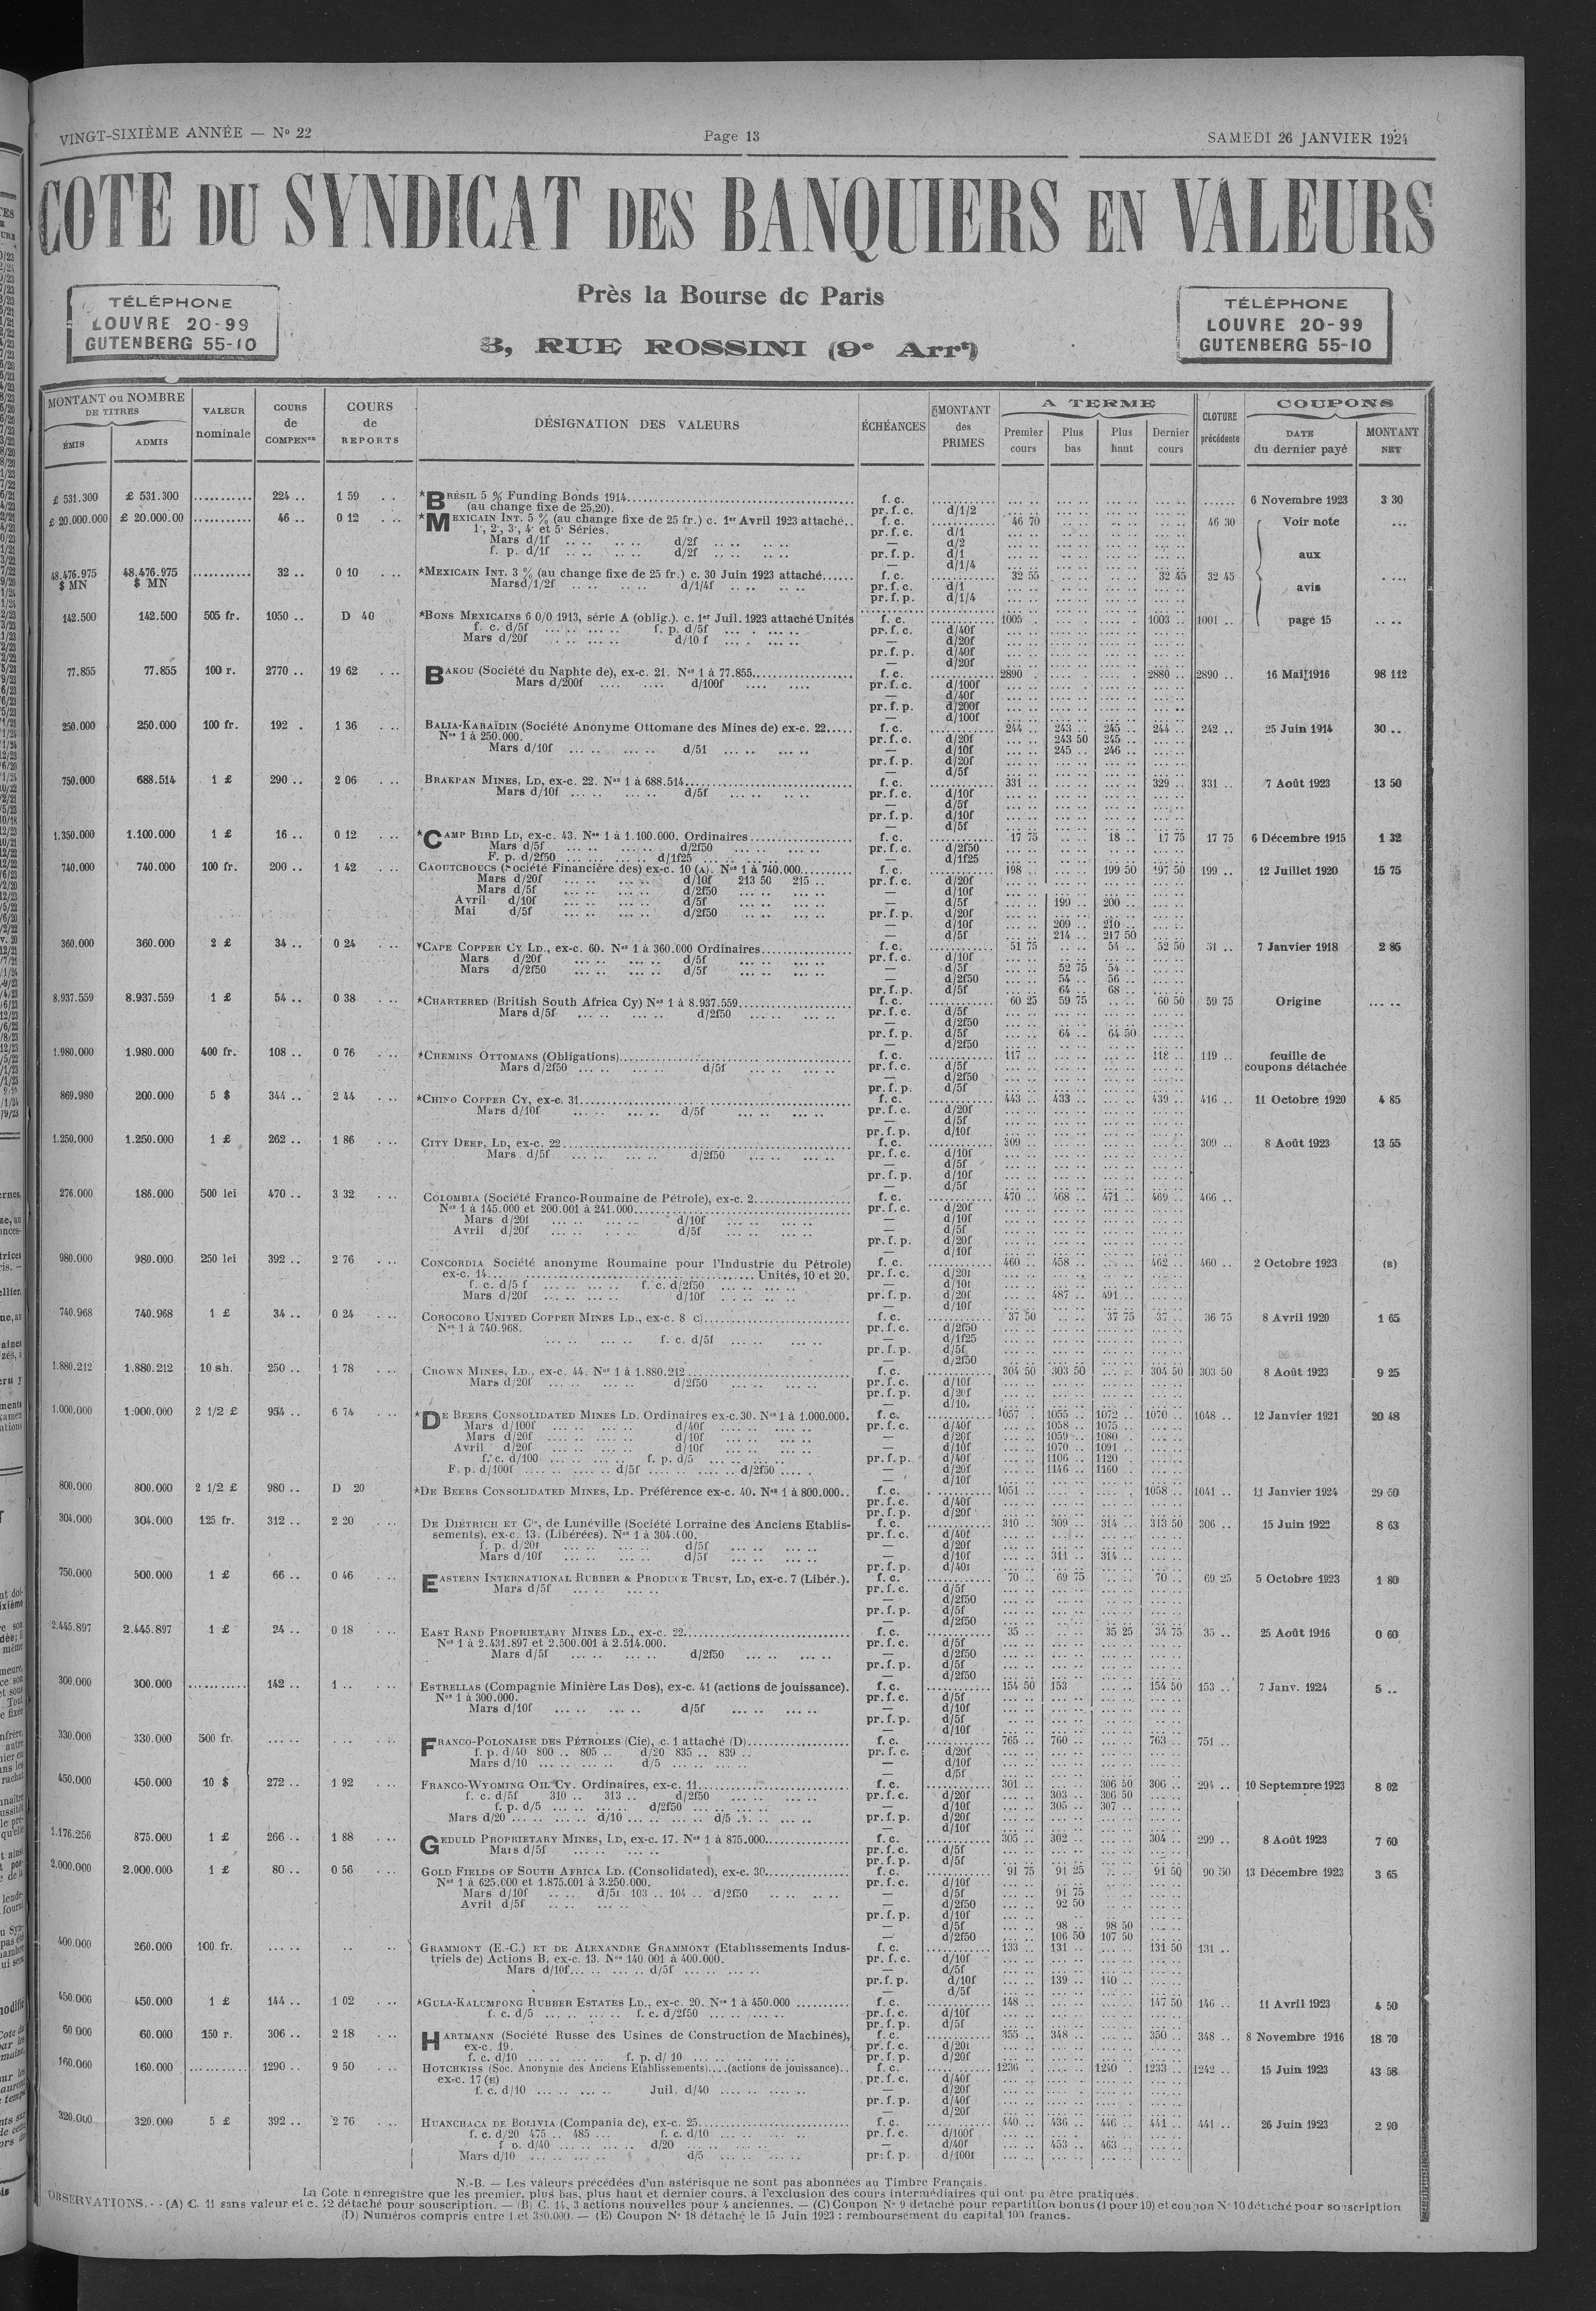 VINGT-SIXIÈME ANNÉE — Nº 22
Page 13
SAMEDI 26 JANVIER 1924
COTE DU SYNDICAT DES BANQUIERS EN VALEURS
TÉLÉPHONE
LOUVRE 20-99
GUTENBERG 55-10
Près la Bourse de Paris
3, RUE ROSSINI (9e Arrt)
TÉLÉPHONE
LOUVRE 20-99
GUTENBERG 55-10
MONTANT ou NOMBRE DE TITRES
ÉMIS
ADMIS
VALEUR nominale
COURS de COMPENon
COURS de REPORTS
DÉSIGNATION DES VALEURS
ÉCHÉANCES
MONTANT des PRIMES
A TERME
Premier cours
Plus bas
Plus haut
Dernier cours
CLOTURE précédente
COUPONS
DATE du dernier payé
MONTANT NET
£ 531.300 £ 531.300 ........... 224 .. 1 59 .. *BRÉSIL 5 % Funding Bonds 1914 f. c. 6 Novembre 1923 3 30
(au change fixe de 25,20). pr. f. c. d/1/2
£ 20.000.000 £ 20.000.00 ........... 46 .. 0 12 ... *MEXICAIN INT. 5 % (au change fixe de 25 fr.) c. 1er Avril 1923 attaché.. f. c. 46 70 46 30 Voir note
1e, 2e, 3e, 4e et 5e Séries. pr. f. c. d/1
Mars d/1f .. .. .. .. d/2f .. .. .. .. — d/2
f. p. d/1f .. .. .. .. d/2f .. .. .. .. pr. f. p. d/1 aux
— d/1/4
48.476.975 $ MN 48.476.975 $ MN ........... 32 .. 0 10 ... *MEXICAIN INT. 3 % (au change fixe de 25 fr.) c. 30 Juin 1923 attaché...... f. c. 32 55 32 45 32 45
Mars d/1/2f .. .. .. .. d/1/4f .. .. .. .. pr. f. c. d/1 avis
pr. f. p. d/1/4
142.500 142.500 505 fr. 1050 .. D 40 *BONS MEXICAINS 6 0/0 1913, série A (oblig.). c. 1er Juil. 1923 attaché Unités f. c. 1005 .. 1003 .. 1001 .. page 15
f. c. d/5f f. p. d/5f pr. f. c. d/40f
Mars d/20f d/10 f — d/20f
pr. f. p. d/40f
— d/20f
77.855 77.855 100 r. 2770 .. 19 62 BAKOU (Société du Naphte de), ex-c. 21. Nos 1 à 77.855 f. c. 2890 . 2880 .. 2890 .. 16 Mai 1916 98 112
Mars d/200f .... .... d/100f .... .... pr. f. c. d/100f
— d/40f
pr. f. p. d/200f
— d/100f
250.000 250.000 100 fr. 192 . 1 36 . .. BALIA-KARAÏDIN (Société Anonyme Ottomane des Mines de) ex-c. 22..... f. c. 244 .. 243 .. 245 .. 244 .. 242 .. 25 Juin 1914 30 ..
Nos 1 à 250.000. pr. f. c. d/20f 243 50 245 ..
Mars d/10f d/51 — d/10f 245 .. 246 ..
pr. f. p. d/20f
— d/5f
750.000 688.514 1 £ 290 .. 2 06 . .. BRAKPAN MINES, LD, ex-c. 22. Nos 1 à 688.514 f. c. 331 .. 329 .. 331 .. 7 Août 1923 13 50
Mars d/10f d/5f pr. f. c. d/10f
— d/5f
pr. f. p. d/10f
— d/5f
1.350.000 1.100.000 1 £ 16 .. 0 12 . .. *CAMP BIRD LD, ex-c. 43. Nos 1 à 1.100.000. Ordinaires f. c. 17 75 18 .. 17 75 17 75 6 Décembre 1915 1 32
Mars d/5f d/2f50 pr. f. c. d/2f50
F. p. d/2f50 d/1f25 — d/1f25
740.000 740.000 100 fr. 200 .. 1 42 . .. CAOUTCHOUCS (Société Financière des) ex-c. 10 (A). Nos 1 à 740.000 f. c. 198 .. 199 50 197 50 199 .. 12 Juillet 1920 15 75
Mars d/20f d/10f 213 50 215 .. pr. f. c. d/20f
Mars d/5f d/2f50 — d/10f
Avril d/10f d/5f — d/5f 199 .. 200 ..
Mai d/5f d/2f50 pr. f. p. d/20f
— d/10f 209 .. 210 ..
— d/5f 214 .. 217 50
360.000 360.000 2 £ 34 .. 0 24 . .. *CAPE COPPER CY LD., ex-c. 60. Nos 1 à 360.000 Ordinaires f. c. 51 75 54 .. 52 50 51 .. 7 Janvier 1918 2 85
Mars d/20f d/5f pr. f. c. d/10f
Mars d/2f50 d/5f — d/5f 52 75 54 ..
— d/2f50 54 .. 56 ..
pr. f. p. d/5f 64 .. 68 ..
8.937.559 8.937.559 1 £ 54 .. 0 38 . .. *CHARTERED (British South Africa Cy) Nos 1 à 8.937.559 f. c. 60 25 59 75 60 50 59 75 Origine
Mars d/5f d/2f50 pr. f. c. d/5f
— d/2f50
pr. f. p. d/5f 64 .. 64 50
— d/2f50
1.980.000 1.980.000 400 fr. 108 .. 0 76 . .. *CHEMINS OTTOMANS (Obligations) f. c. 117 .. 118 .. 119 .. feuille de
Mars d/2f50 d/5f pr. f. c. d/5f coupons détachée
— d/2f50
pr. f. p. d/5f
869.980 200.000 5 $ 344 .. 2 44 . .. *CHINO COPPER CY, ex-c. 31 f. c. 443 .. 433 .. 439 .. 416 .. 11 Octobre 1920 4 85
Mars d/10f d/5f pr. f. c. d/20f
— d/5f
pr. f. p. d/10f
1.250.000 1.250.000 1 £ 262 .. 1 86 . .. CITY DEEP, LD, ex-c. 22 f. c. 309 309 .. 8 Août 1923 13 55
Mars d/5f d/2f50 pr. f. c. d/10f
— d/5f
pr. f. p. d/10f
— d/5f
276.000 186.000 500 lei 470 .. 3 32 . .. COLOMBIA (Société Franco-Roumaine de Pétrole), ex-c. 2 f. c. 470 .. 468 .. 471 .. 469 .. 466 ..
Nos 1 à 145.000 et 200.001 à 241.000 pr. f. c. d/20f
Mars d/20f d/10f — d/10f
Avril d/20f d/5f — d/5f
pr. f. p. d/20f
— d/10f
980.000 980.000 250 lei 392 .. 2 76 . .. CONCORDIA Société anonyme Roumaine pour l'Industrie du Pétrole) f. c. 460 .. 458 .. 462 .. 460 .. 2 Octobre 1923 (B)
ex-c. 14 Unités, 10 et 20. pr. f. c. d/20f
f. c. d/5 f f. c. d/2f50 — d/10f
Mars d/20f d/10f pr. f. p. d/20f 487 .. 491 ..
— d/10f
740.968 740.968 1 £ 34 .. 0 24 . .. COROCORO UNITED COPPER MINES LD., ex-c. 8 c) f. c. 37 50 37 75 37 .. 36 75 8 Avril 1920 1 65
Nos 1 à 740.968. pr. f. c. d/2f50
f. c. d/5f — d/1f25
pr. f. p. d/5f
— d/2f50
1.880.212 1.880.212 10 sh. 250 .. 1 78 . .. CROWN MINES, LD., ex-c. 44. Nos 1 à 1.880.212 f. c. 304 50 303 50 304 50 303 50 8 Août 1923 9 25
Mars d/20f d/2f50 pr. f. c. d/10f
pr. f. p. d/20f
— d/10.
1.000.000 1.000.000 2 1/2 £ 954 .. 6 74 . .. *DE BEERS CONSOLIDATED MINES LD. Ordinaires ex-c. 30. Nos 1 à 1.000.000. f. c. 1057 . 1055 .. 1072 .. 1070 .. 1048 .. 12 Janvier 1921 20 48
Mars d/100f d/40f pr. f. c. d/40f 1058 .. 1075 ..
Mars d/20f d/10f — d/20f 1059 .. 1080 ..
Avril d/20f d/10f — d/10f 1070 .. 1091 ..
f. c. d/100 f. p. d/5 pr. f. p. d/40f 1106 .. 1120 ..
F. p. d/100f d/5f d/2f50 — d/20f 1146 .. 1160 ..
— d/10f
800.000 800.000 2 1/2 £ 980 .. D 20 *DE BEERS CONSOLIDATED MINES, LD. Préférence ex-c. 40. Nos 1 à 800.000.. f. c. 1051 .. 1058 .. 1041 .. 11 Janvier 1924 29 50
pr. f. c. d/40f
pr. f. p. d/20f
304.000 304.000 125 fr. 312 .. 2 20 . .. DE DIÉTRICH ET Cie, de Lunéville (Société Lorraine des Anciens Etablis- f. c. 310 .. 309 .. 314 .. 313 50 306 .. 15 Juin 1922 8 63
sements), ex-c. 13. (Libérées). Nos 1 à 304.000. pr. f. c. d/40f
f. p. d/20f d/5f — d/20f
Mars d/10f d/5f — d/10f 311 .. 314 ..
pr. f. p. d/40f
750.000 500.000 1 £ 66 .. 0 46 . .. EASTERN INTERNATIONAL RUBBER & PRODUCE TRUST, LD, ex-c. 7 (Libér.). f. c. 70 .. 69 75 70 .. 69 25 5 Octobre 1923 1 80
Mars d/5f pr. f. c. d/5f
— d/2f50
pr. f. p. d/5f
— d/2f50
2.445.897 2.445.897 1 £ 24 .. 0 18 . .. EAST RAND PROPRIETARY MINES, LD., ex-c. 22 f. c. 35 35 25 34 75 35 .. 25 Août 1916 0 60
Nos 1 à 2.431.897 et 2.500.001 à 2.514.000. pr. f. c. d/5f
Mars d/5f d/2f50 — d/2f50
pr. f. p. d/5f
— d/2f50
300.000 300.000 ........... 142 .. 1 .. . .. ESTRELLAS (Compagnie Minière Las Dos), ex-c. 41 (actions de jouissance). f. c. 154 50 153 154 50 153 .. 7 Janv. 1924 5 ..
Nos 1 à 300.000. pr. f. c. d/5f
Mars d/10f d/5f — d/10f
pr. f. p. d/5f
— d/10f
330.000 330.000 500 fr. FRANCO-POLONAISE DES PÉTROLES (Cie), c. 1 attaché (D) f. c. 765 .. 760 .. 763 .. 751 ..
f. p. d/40 800 .. 805 .. d/20 835 .. 839 .. pr. f. c. d/20f
Mars d/10 d/5 — d/10f
— d/5f
450.000 450.000 10 $ 272 .. 1 92 . .. FRANCO-WYOMING OIL CY. Ordinaires, ex-c. 11 f. c. 301 .. 306 50 306 .. 294 .. 10 Septembre 1923 8 02
f. c. d/5f 310 .. 313 .. d/2f50 pr. f. c. d/20f 303 .. 306 50
f. p. d/5 d/2f50 — d/10f 305 .. 307 ..
Mars d/20 d/10 d/5 pr. f. p. d/20f
— d/10f
1.176.256 875.000 1 £ 266 .. 1 88 . .. GEDULD PROPRIETARY MINES, LD, ex-c. 17. Nos 1 à 875.000 f. c. 305 .. 302 .. 304 .. 299 .. 8 Août 1923 7 60
Mars d/5f pr. f. c. d/5f
pr. f. p. d/5f
2.000.000 2.000.000 1 £ 80 .. 0 56 . .. GOLD FIELDS OF SOUTH AFRICA LD. (Consolidated), ex-c. 30 f. c. 91 75 91 25 91 50 90 50 13 Décembre 1923 3 65
Nos 1 à 625.000 et 1.875.001 à 3.250.000. pr. f. c. d/10f
Mars d/10f d/5f 103 .. 104 .. d/2f50 — d/5f 91 75
Avril d/5f — d/2f50 92 50
pr. f. p. d/10f
— d/5f 98 .. 98 50
— d/2f50 106 50 107 50
400.000 260.000 100 fr. GRAMMONT (E.-C.) ET DE ALEXANDRE GRAMMONT (Etablissements Indus- f. c. 133 .. 131 .. 131 50 131 ..
triels de) Actions B, ex-c. 13. Nos 140 001 à 400.000. pr. f. c. d/10f
Mars d/10f d/5f — d/5f
pr. f. p. d/10f 139 .. 140 ..
— d/5f
450.000 450.000 1 £ 144 .. 1 02 .. *GULA-KALUMPONG RUBBER ESTATES LD., ex-c. 20. Nos 1 à 450.000 f. c. 148 .. 147 50 146 .. 11 Avril 1923 4 50
f. c. d/5 f. c. d/2f50 pr. f. c. d/10f
pr. f. p. d/5f
60 000 60.000 150 r. 306 .. 2 18 . .. HARTMANN (Société Russe des Usines de Construction de Machines), f. c. 355 .. 348 .. 350 .. 348 .. 8 Novembre 1916 18 70
ex-c. 19. pr. f. c. d/20f
f. c. d/10 f. p. d/ 10 pr. f. p. d/20f
160.000 160.000 ........... 1290 .. 9 50 . .. HOTCHKISS (Soc. Anonyme des Anciens Etablissements)....(actions de jouissance).. f. c. 1236 . 1240 .. 1233 .. 1242 .. 15 Juin 1923 43 58
ex-c. 17 (E) pr. f. c. d/40f
f. c. d/10 Juil. d/40 — d/20f
pr. f. p. d/40f
— d/20f
320.000 320.000 5 £ 392 .. 2 76 . .. HUANCHACA DE BOLIVIA (Compania de), ex-c. 25 f. c. 440 .. 436 .. 446 .. 441 .. 441 .. 26 Juin 1923 2 90
f. c. d/20 475 .. 485 ... f. c. d/10 pr. f. c. d/100f
f. p. d/40 d/20 — d/40f 453 .. 463 ..
Mars d/10 d/5 pr. f. p. d/100f
N.-B. — Les valeurs précédées d'un astérisque ne sont pas abonnées au Timbre Français.
La Cote n'enregistre que les premier, plus bas, plus haut et dernier cours, à l'exclusion des cours intermédiaires qui ont pu être pratiqués.
OBSERVATIONS. - - (A) C. 11 sans valeur et c. 12 détaché pour souscription. — (B) C. 14, 3 actions nouvelles pour 4 anciennes. — (C) Coupon No 9 detaché pour repartition bonus (1 pour 10) et coupon No 10 détaché pour souscription
(D) Numéros compris entre 1 et 380.000. — (E) Coupon No 18 détaché le 15 Juin 1923 : remboursement du capital 100 francs.